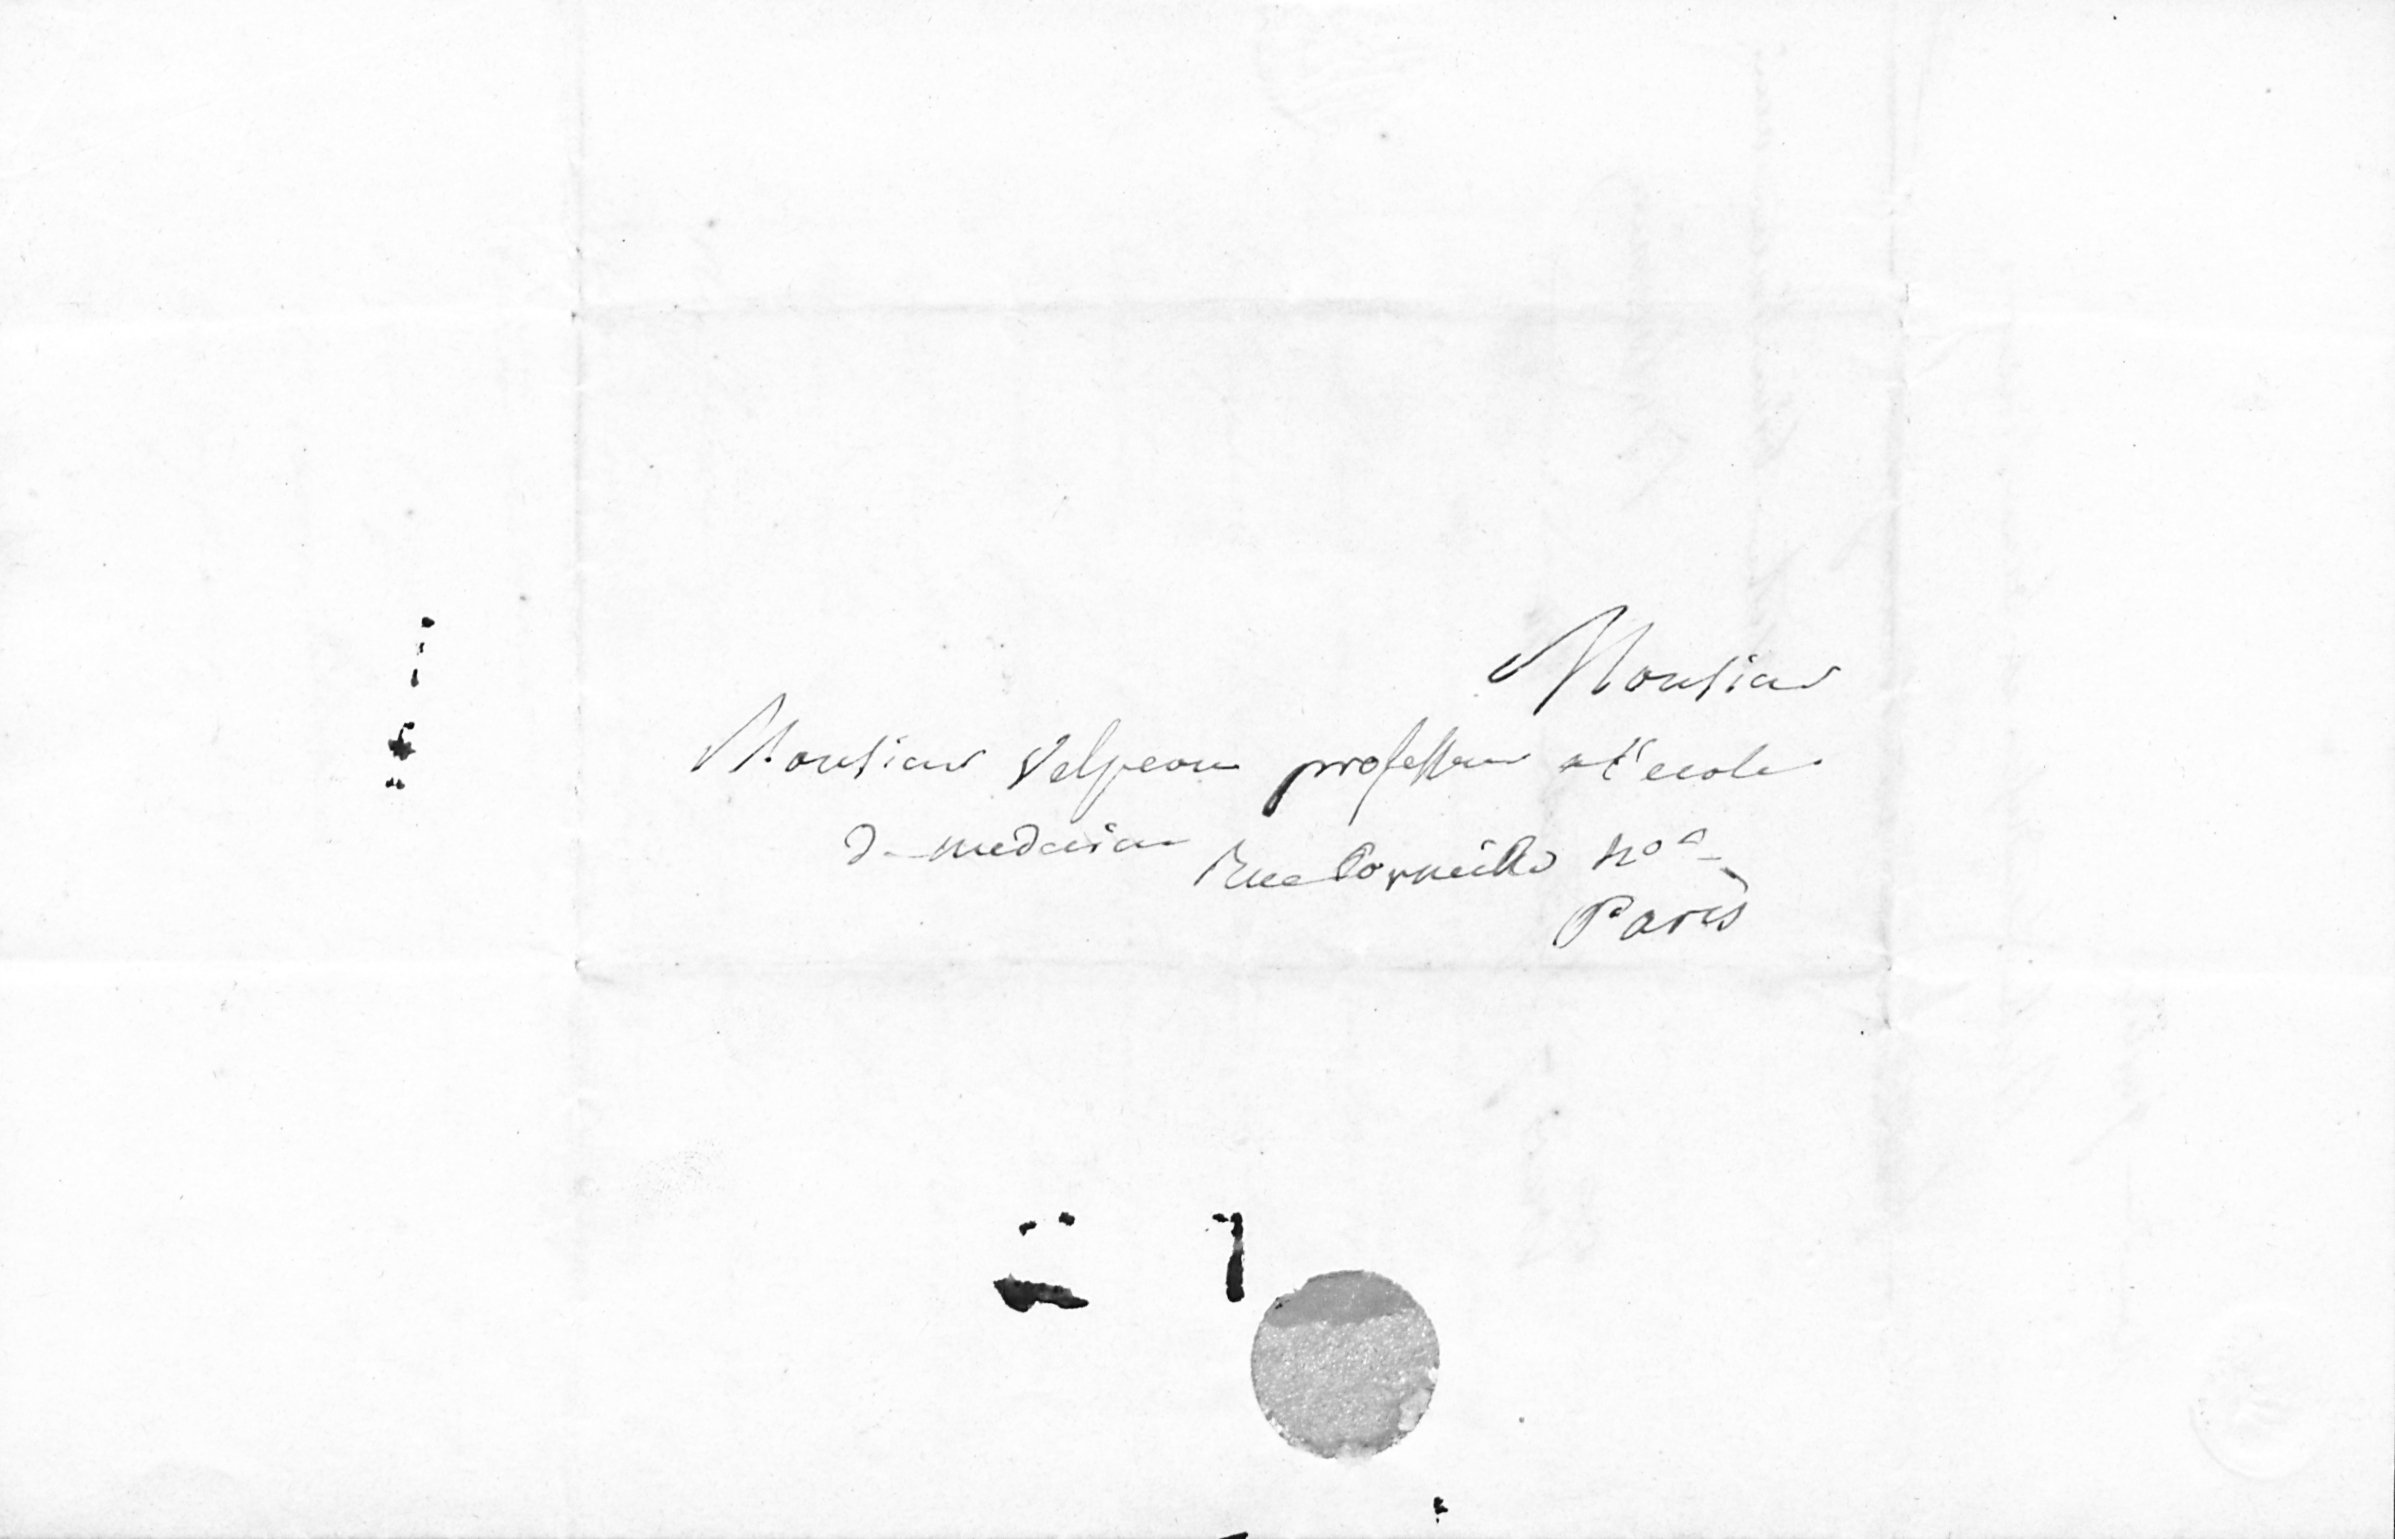 Monsieur
Monsieur Velpeau professeur a l'ecole
de medecine Rue Corneille no
Paris